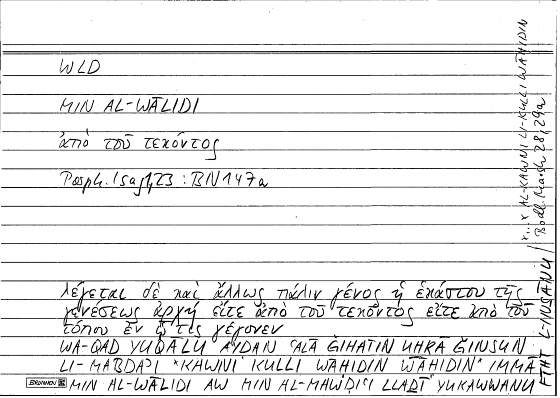 WLD
MIN AL-WĀLIDI
ἀπὸ τοῦ τεκόντος
Porph. Isag 1,23 : BN 147a
λέγεται δὲ καὶ ἄλλως πάλιν γένος ἡ ἑκάστου τῆς
γενέσεως ἀρχὴ εἴτε ἀπὸ τοῦ τεκόντος εἴτε ἀπὸ τοῦ
τόπου ἐν ᾧ τις γέγονεν
WA-QAD YUQĀLU AYḌAN ʿALĀ ǦIHATIN UḪRĀ ǦINSUN
LI-MABDAʾI *KAWNI KULLI WĀḤIDIN WĀḤIDIN* IMMĀ
MIN AL-WĀLIDI AW MIN AL-MAWḌIʿI LLAḎĪ YUKAWWANU
BRUNNEN
FĪHI L-INSĀNU / *...* AL-KAWNI LI-KULLI WĀḤIDIN
Bodl. Marsh 28, 29a